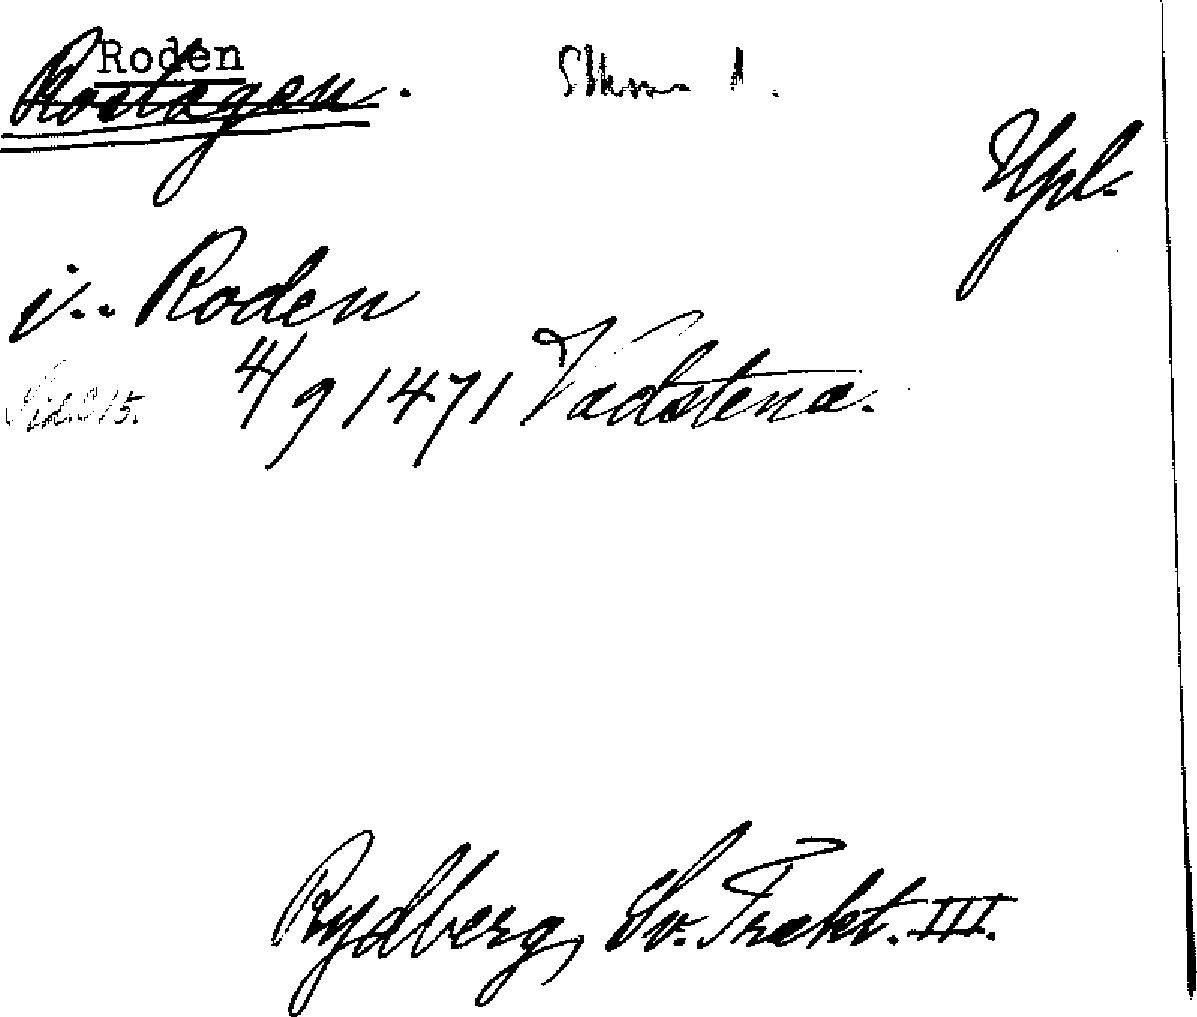 Roden
Roslagen.
Upl.
i.. Roden
4/9 1471 Vadstena.
Sid. 315.
Rydberg, Sv. Trakt. III.